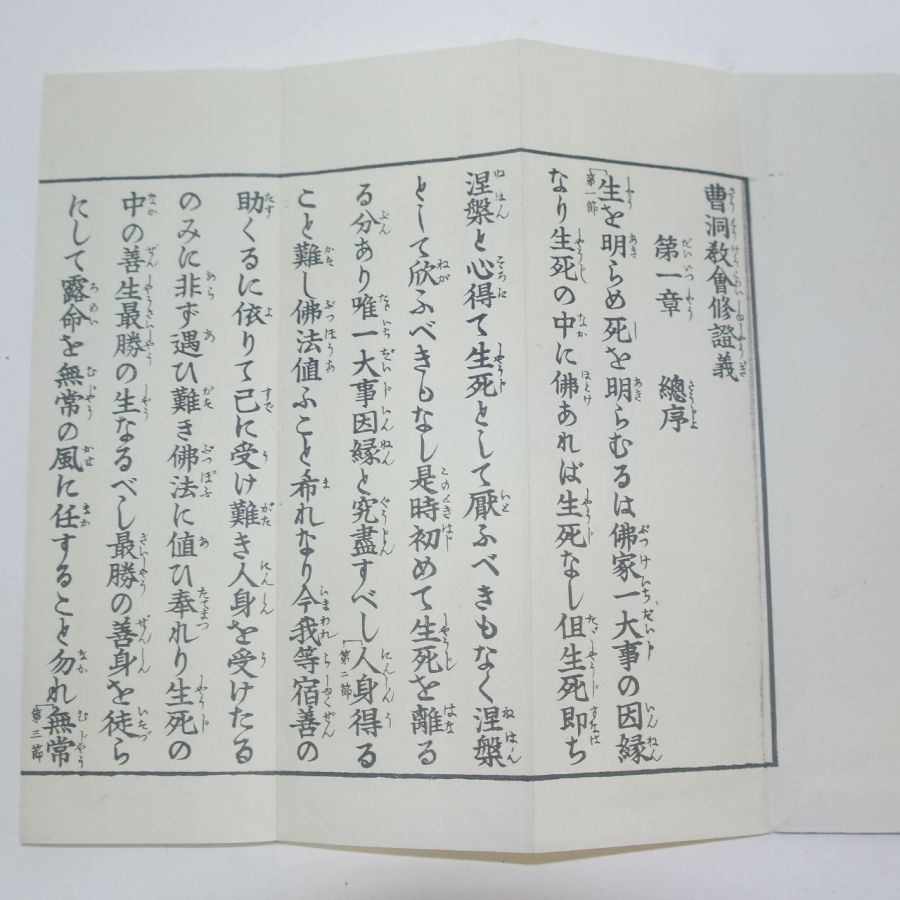 曹洞敎會修證義
第一章　總序
「第一節 生を明らめ死を明らむるは佛家一大事の因縁
なり生死の中に佛あれば生死なし但生死即ち
涅槃と心得て生死として厭ふべきもなく涅槃
として欣ふべきもなし是時初めて生死を離る
る分あり唯一大事因縁と究盡すべし「第二節 人身得る
こと難し佛法値ふこと希れなり今我等宿善の
助くるに依りて已に受け難き人身を受けたる
のみに非ず遇ひ難き佛法に値ひ奉れり生死の
中の善生最勝の生なるべし最勝の善身を徒ら
にして露命を無常の風に任すること勿れ「第三節 無常